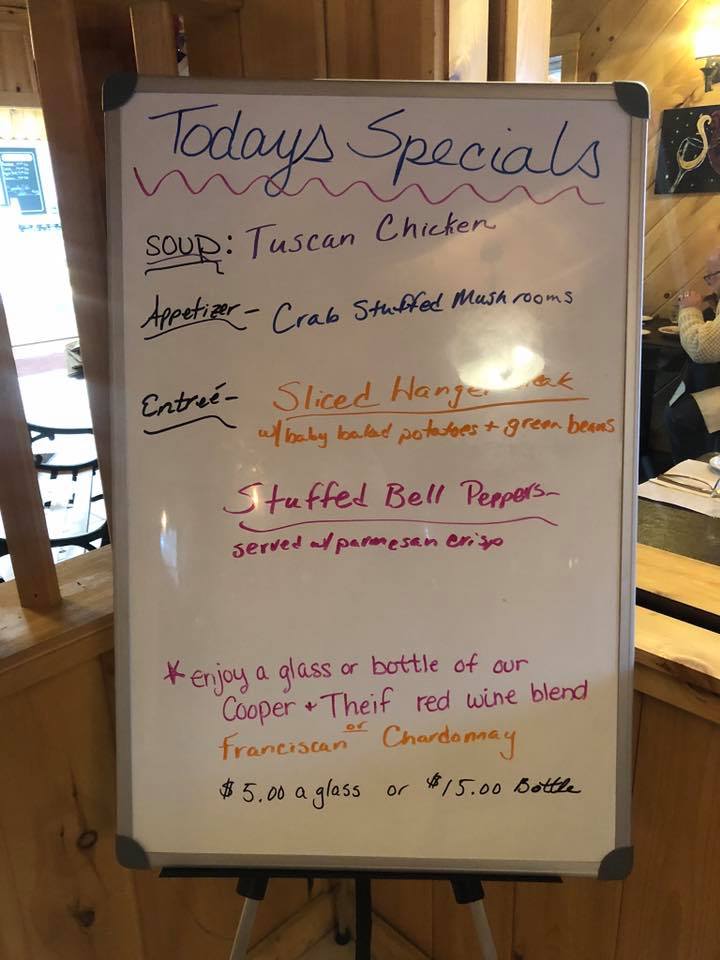 Todays Specials
SOUP: Tuscan Chicken
Appetizer- Crab Stuffed Mushrooms
Entreé- Sliced
w/baby baked potatoes + green beans
Stuffed Bell Peppers-
served w/parmesan crisp
* enjoy a glass or bottle of our
Cooper + Theif red wine blend
or
Franciscan Chardonnay
$5.00 a glass or $15.00 Bottle